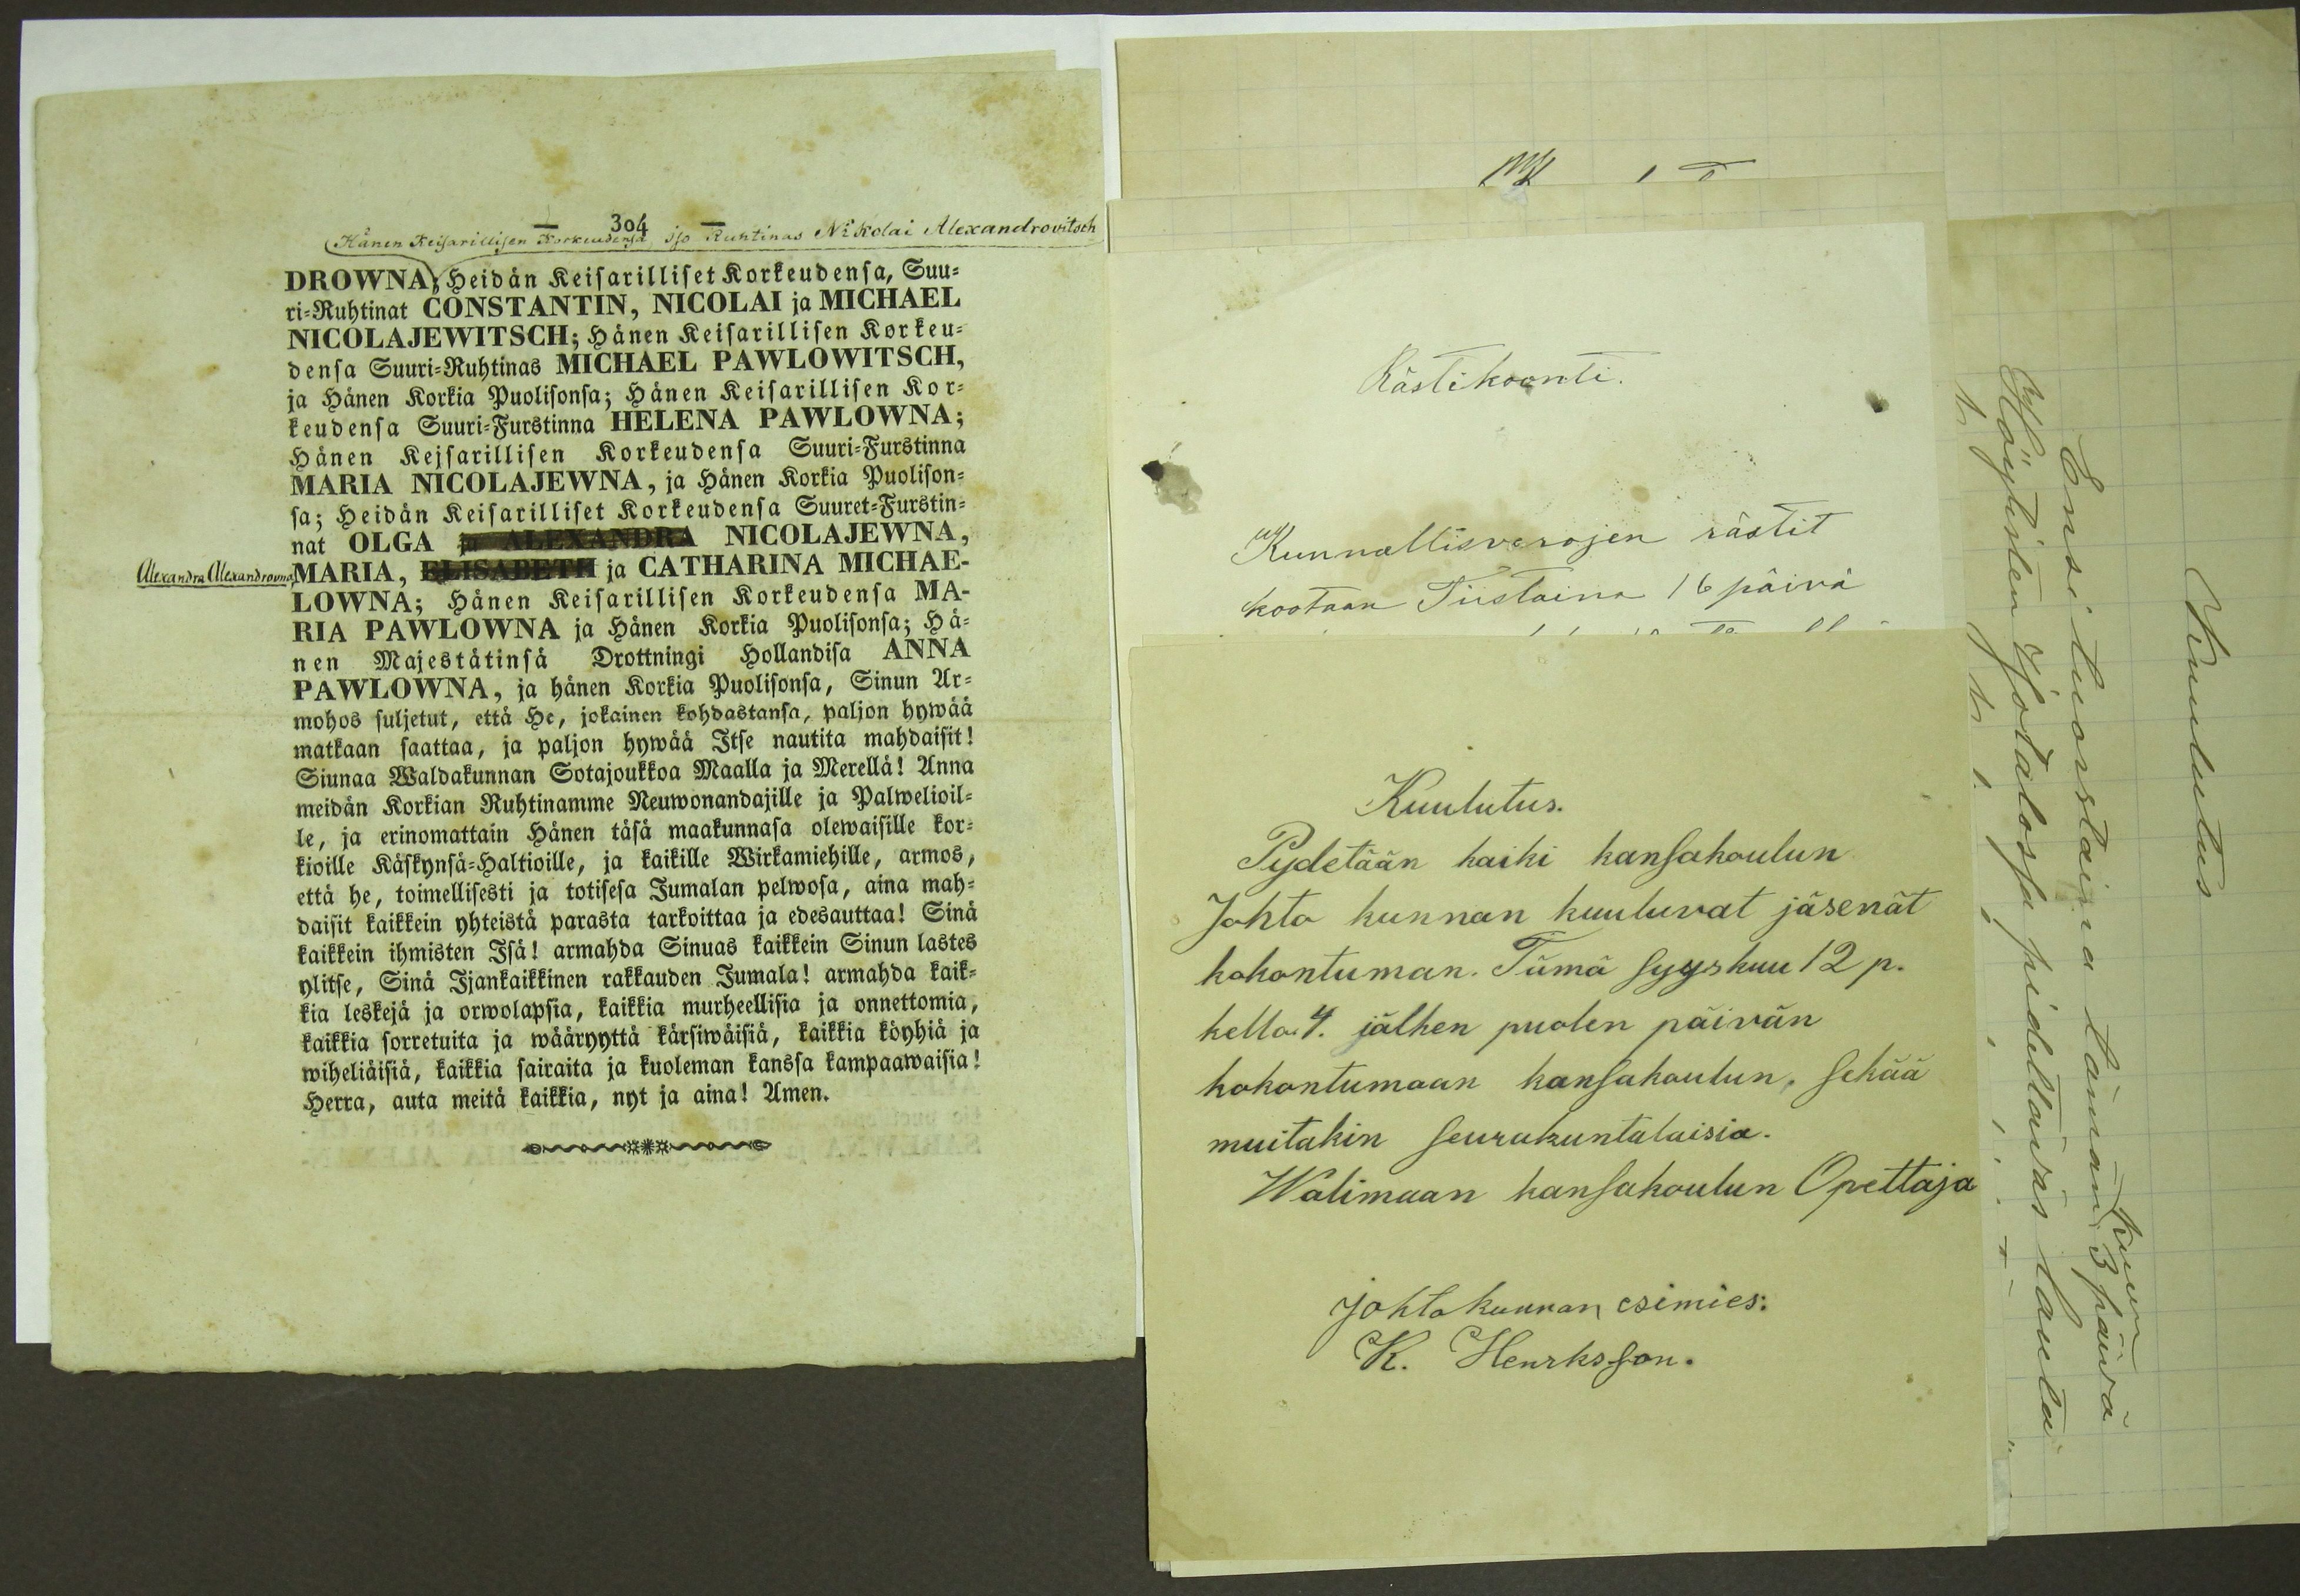 — 304 —
Hänen Keisarillisen Korkeudensa, iso Ruhtinas Nikolai Alexandrovitsch
DROWNA; Heidän Keisarilliset Korkeudensa, Suu-
ri-Ruhtinat CONSTANTIN, NICOLAI ja MICHAEL
NICOLAJEWITSCH; Hänen Keisarillisen Korkeu-
densa Suuri-Ruhtinas MICHAEL PAWLOWITSCH,
ja Hänen Korkia Puolisonsa; Hänen Keisarillisen Kor-
keudensa Suuri-Furstinna HELENA PAWLOWNA;
Hänen Kejsarillisen Korkeudensa Suuri-Furstinna
MARIA NICOLAJEWNA, ja Hänen Korkia Puolison-
sa; Heidän Keisarilliset Korkeudensa Suuret-Furstin-
nat OLGA ja ALEXANDRA NICOLAJEWNA,
Alexandra Alexandrovna, MARIA, ELISABETH ja CATHARINA MICHAE-
LOWNA; Hänen Keisarillisen Korkeudensa MA-
RIA PAWLOWNA ja Hänen Korkia Puolisonsa; Hä-
nen Majestätinsä Drottningi Hollandisa ANNA
PAWLOWNA, ja hänen Korkia Puolisonsa, Sinun Ar-
mohos suljetut, että He, jokainen kohdastansa, paljon hywää
matkaan saattaa, ja paljon hywää Itse nautita mahdaisit!
Siunaa Waldakunnan Sotajoukkoa Maalla ja Merellä! Anna
meidän Korkian Ruhtinamme Neuwonandajille ja Palwelioil-
le, ja erinomattain Hänen täsä maakunnasa olewaisille kor-
kioille Käskynsä-Haltioille, ja kaikille Wirkamiehille, armos,
että he, toimellisesti ja totisesa Jumalan pelwosa, aina mah-
daisit kaikkein yhteistä parasta tarkoittaa ja edesauttaa! Sinä
kaikkein ihmisten Isä! armahda Sinuas kaikkein Sinun lastes
ylitse, Sinä Ijankaikkinen rakkauden Jumala! armahda kaik-
kia leskejä ja orwolapsia, kaikkia murheellisia ja onnettomia,
kaikkia sorretuita ja wääryyttä kärsiwäisiä, kaikkia köyhiä ja
wiheliäisiä, kaikkia sairaita ja kuoleman kanssa kampaawaisia!
Herra, auta meitä kaikkia, nyt ja aina! Amen.
Rästikoonti.
Kunnallisverojen rästit
kootaan Tiistaina 16 päivä
Kuulutus.
Pydetään kaiki kansakoulun
Johto kunnan kuuluvat jäsenät
kokontuman. Tümä syyskuu 12 p.
kello 4. jälken puolen päivän
kokontumaan kansakoulun, sekää
muitakin seurakuntalaisia.
Walimaan kansakoulun Opettaja
Johto kunnan esimies:
K. Henrksson.
Kuulutus
Ensi tuorstaina tämän kuun 3 päivä
Höytisten Hovtalossa pidettävän lauta